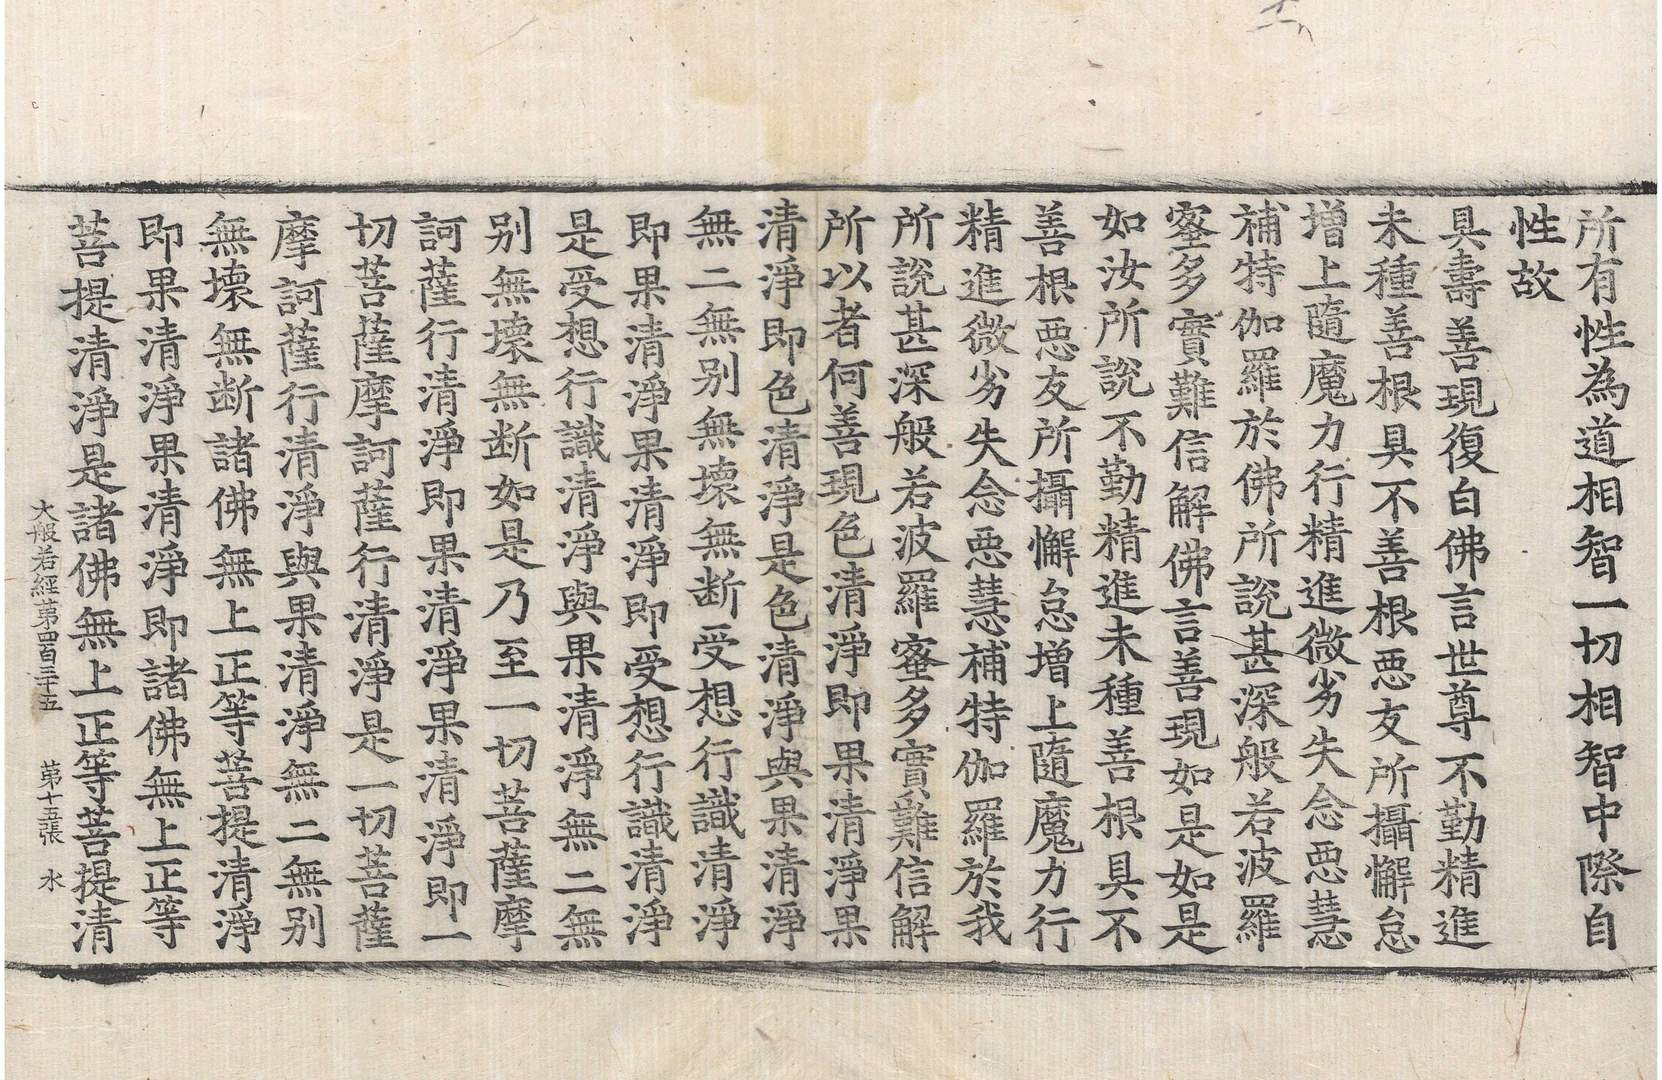 所有性為道相智一切相智中際自
性故
具壽善現復白佛言世尊不勤精進
未種善根具不善根惡友所攝懈怠
增上隨魔力行精進微劣失念惡慧
補特伽羅於佛所說甚深般若波羅
蜜多實難信解佛言善現如是如是
如汝所說不勤精進未種善根具不
善根惡友所攝懈怠增上隨魔力行
精進微劣失念惡慧補特伽羅於我
所說甚深般若波羅蜜多實難信解
所以者何善現色清淨即果清淨果
清淨即色清淨是色清淨與果清淨
無二無別無壞無断受想行識清淨
即果清淨果清淨即受想行識清淨
是受想行識清淨與果清淨無二無
別無壞無断如是乃至一切菩薩摩
訶薩行清淨即果清淨果清淨即一
切菩薩摩訶薩行清淨是一切菩薩
摩訶薩行清淨與果清淨無二無別
無壞無断諸佛無上正等菩提清淨
即果清淨果清淨即諸佛無上正等
菩提清淨是諸佛無上正等菩提清
大般若經苐四百三十五 苐十五張 水